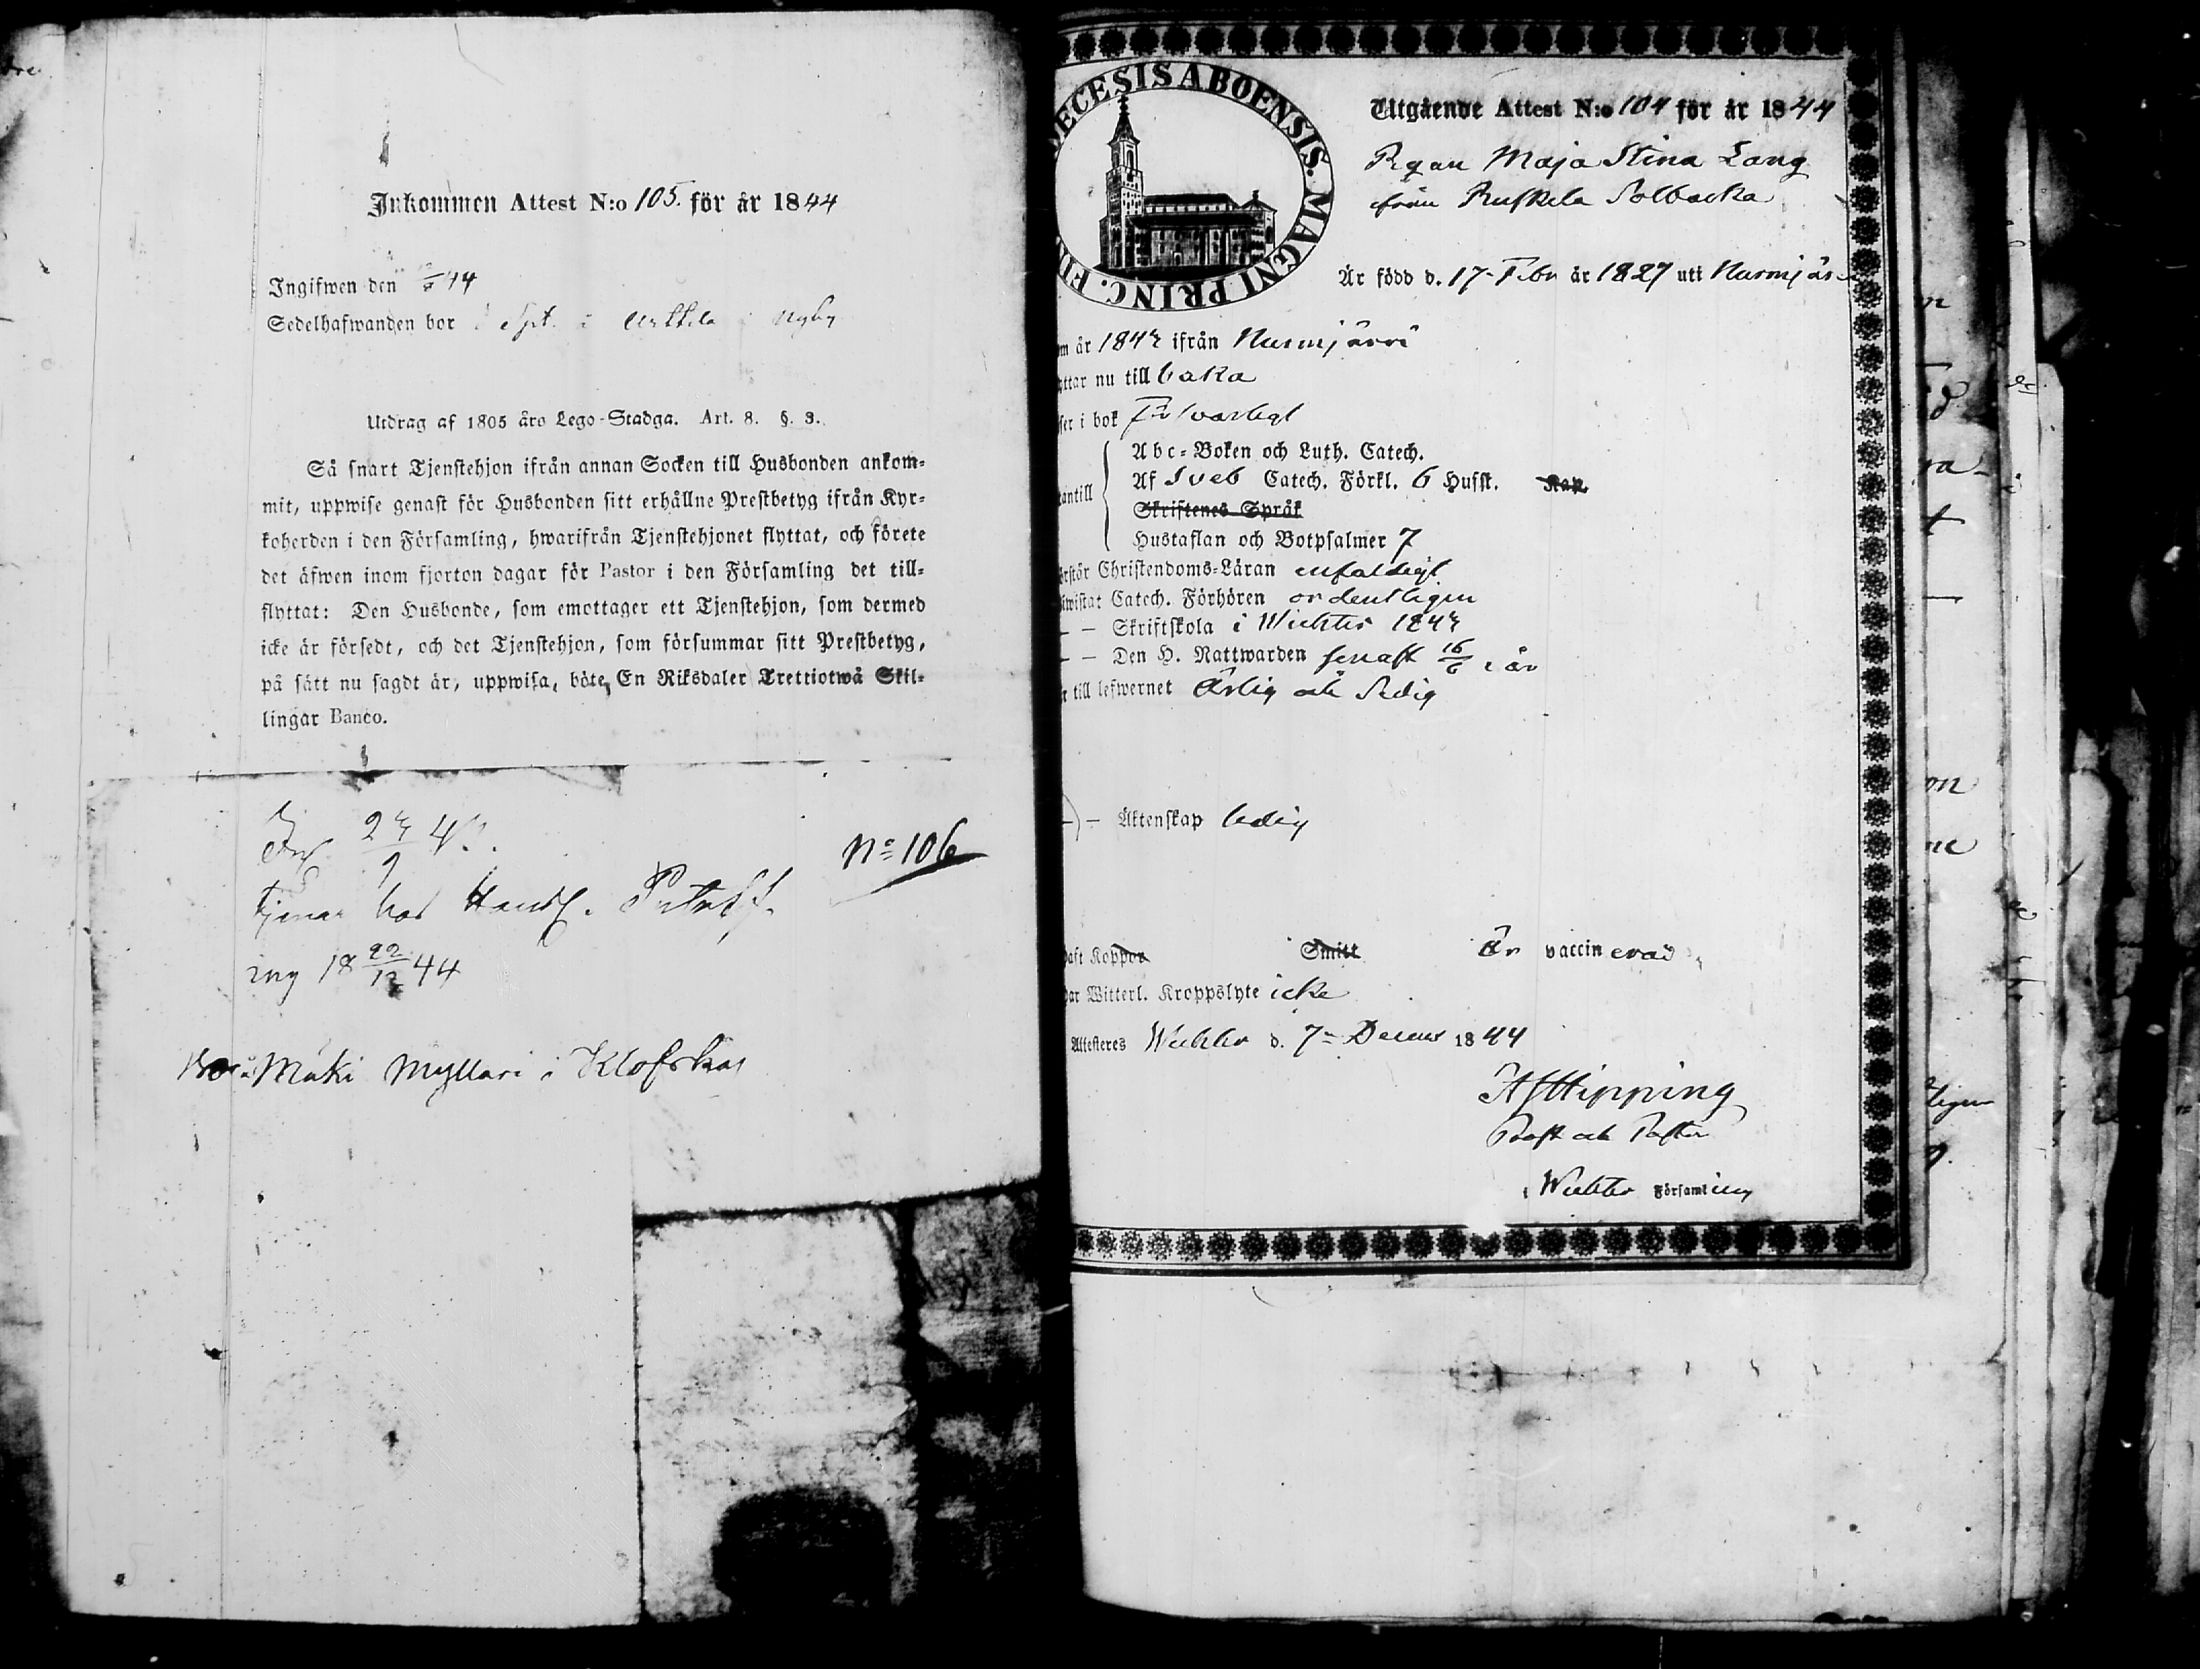 Inkommen Attest N:o 105. för år 1844
Ingifwen den 44
Sedelhafwanden bor i
Utdrag af 1805 års Lego-Stadga. Art. 8. §. 3.
Så snart Tjenstehjon ifrån annan Socken till Husbonden ankom-
mit, uppwise genast för Husbonden sitt erhållne Prestbetyg ifrån Kyr-
koherden i den Församling, hwarifrån Tjenstehjonet flyttat, och förete
det äfwen inom fjorton dagar för Pastor i den Församling det till-
flyttat: Den Husbonde, som emottager ett Tjenstehjon, som dermed
icke är försedt, och det Tjenstehjon, som försummar sitt Prestbetyg,
på sätt nu sagdt är, uppwisa, böte, En Riksdaler Trettiotwå Skil-
lingar Banco.
No 106
tjenar hos Handl.
ing 18 22/12 44
Mäki Myllari i
DECESIS ABOENSIS. MAGNI PRINC. FI
Utgående Attest N:o 104 för år 1844
Pgan Maja Stina Lang
ifrån Ruskela Solbacka
Är född d. 17 Febr år 1827 uti Nurmijär
om år 184 ifrån Nurmijärvi
ttar nu till baka
ser i bok Försvarligt
Abc-Boken och Luth. Catech.
antill Af Sveb Catech. Förkl. 6 Hufst. Kap.
Skriftenes Språk
Hustaflan och Botpsalmer 7
örstår Christendoms-Läran enfaldigt
iwistat Catech. Förhören ordentligen
— — Skriftskola i Wichtis 184
— — Den H. Nattwarden senast 16/6 i år
r till lefwernet Ärlig och Sedig
— Äktenskap ledig
aft Koppor Smitt Är vaccinerad
ar Witterl. Kroppslyte icke
Attesteres Wichtis d. 7 Decemb 1844
AJHipping
Prost och Pastor
i Wichtis Församling